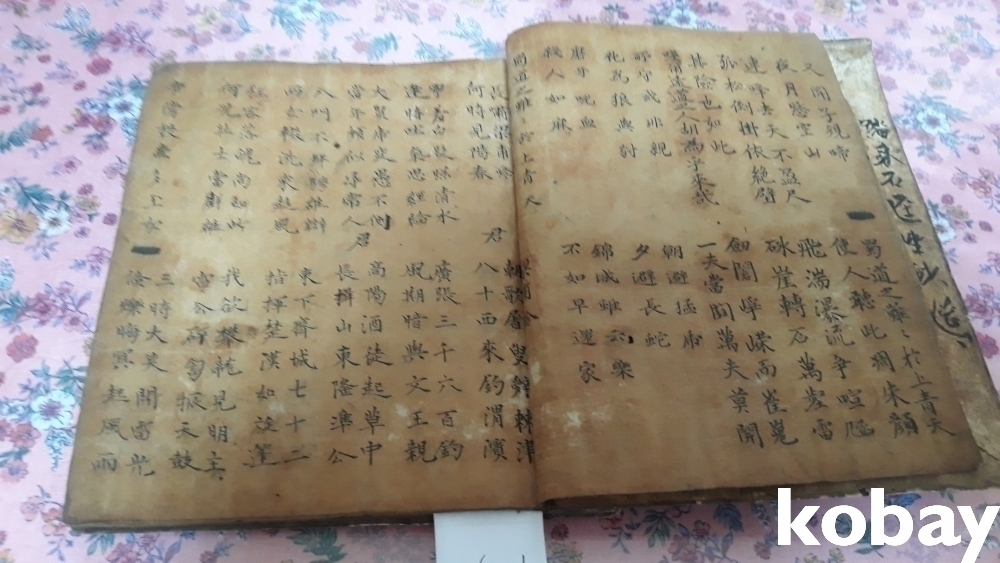 又聞子規啼
夜月愁空山
蜀道之難〻於上青天
使人聽此凋朱顔
連峰去天不盈尺
孤松倒掛依絶壁
飛湍瀑流爭喧豗
砯崖轉石萬壑雷
其險也如此
嗟爾遠道之人胡為乎來哉
劍閣崢嶸而崔嵬
一夫當關萬夫莫開
所守或非親
化為狼與豺
朝避猛虎
夕避長蛇
磨牙吮血
殺人如麻
錦城雖云樂
不如早還家
蜀道之難〻於上青天
長嘯梁甫吟
何時見陽春
君
朝歌屠叟辭棘津
八十西來釣渭濱
寧羞白髮照清水
逢時吐氣思經綸
廣張三千六百釣
風期暗與文王親
大賢虎變愚不測
當年頗似尋常人
君
高陽酒徒起草中
長揖山東隆準公
入門不拜騁雄辯
兩女輟洗來趨風
東下齊城七十二
指揮楚漢如旋蓬
狂客落魄尚如此
何況壯士當群雄
我欲攀龍見明主
雷公砰訇振天鼓
帝旁投壺多玉女
三時大笑開電光
倏爍晦冥起風雨
kobay